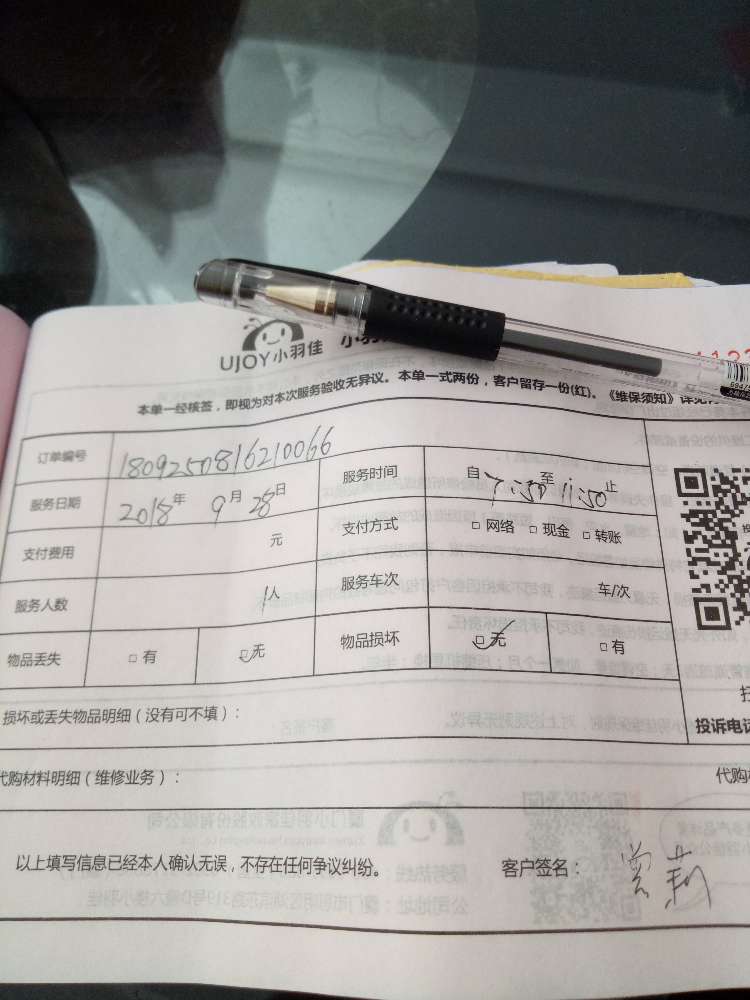 UJOY小羽佳
本单一经核签，即视为对本次服务验收无异议。本单一式两份，客户留存一份(红)。《维保须知》详见
订单编号 1809250816210066 服务时间 自 7:50 至 11:50 止
服务日期 2018年 9月 28日 支付方式 □网络 □现金 □转账
支付费用 元
服务人数 1人 服务车次 车/次
物品丢失 □有 □无 物品损坏 □无 □有
损坏或丢失物品明细（没有可不填）：
投诉电话
代购材料明细（维修业务）： 代购
以上填写信息已经本人确认无误，不存在任何争议纠纷。 客户签名：